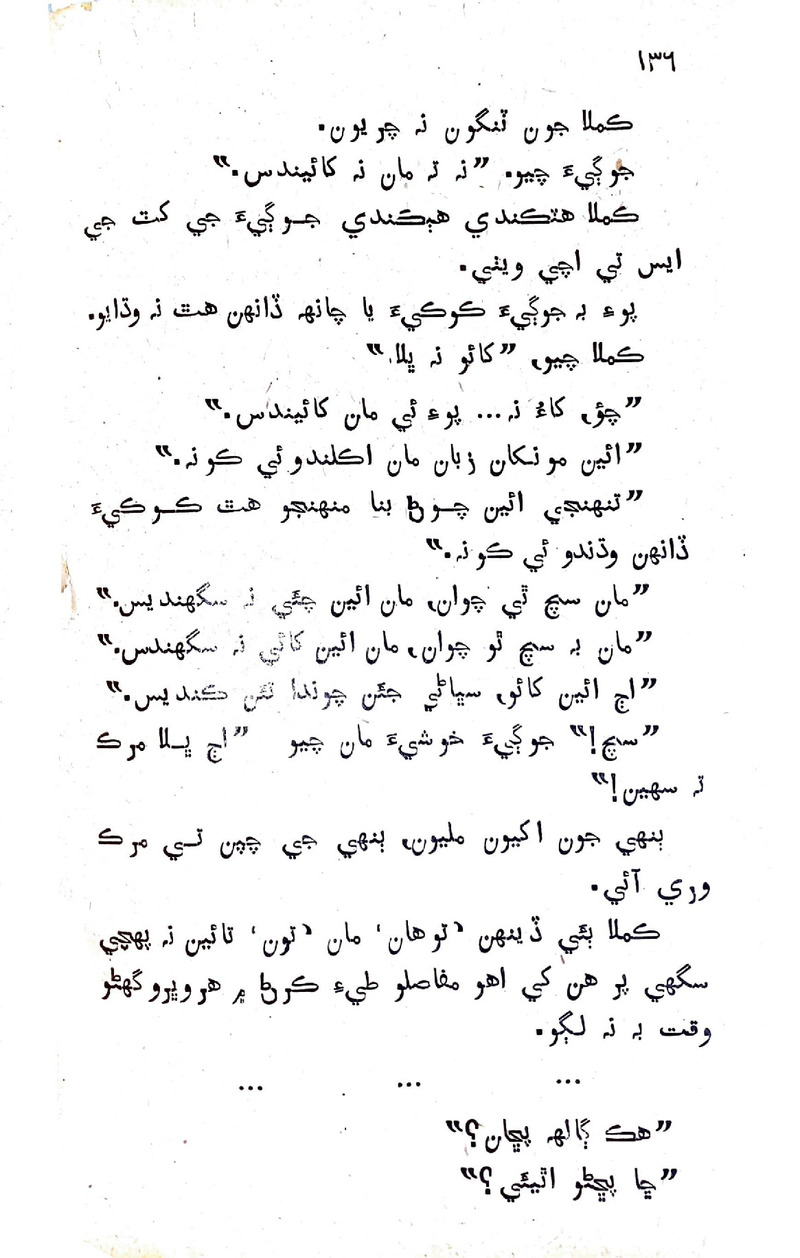 ۱۳۶
ڪملا جون ٽنگون نہ چريون.
جوڳيءَ چيو. ”نہ تہ مان نہ کائيندس.“
ڪملا هٽڪندي هٻڪندي جوڳيءَ جي کٽ جي
ايس تي اچي ويٺي.
پوءِ بہ جوڳيءَ ڪوڪيءَ يا چانهہ ڏانهن هٿ نہ وڌايو.
ڪملا چيو، ”کائو نہ ڀلا.“
”چؤ، کاءُ نہ... پوءِ ئي مان کائيندس.“
”ائين مونکان زبان مان اڪلندو ئي ڪونہ.“
”تنهنجي ائين چوڻ بنا منهنجو هٿ ڪوڪيءَ
ڏانهن وڌندو ئي ڪونہ.“
”مان سچ ٿي چوان، مان ائين چئي نہ سگهنديس.“
”مان بہ سچ ٿو چوان، مان ائين کائي نہ سگهندس.“
”اڄ ائين کائو، سڀاڻي جئن چوندا تئن ڪنديس.“
”سچ!“ جوڳيءَ خوشيءَ مان چيو ”اڄ ڀلا مرڪ
تہ سهين!“
ٻنهي جون اکيون مليون، ٻنهي جي چپن تي مرڪ
وري آئي.
ڪملا ٻئي ڏينهن ‘توهان’ مان ‘تون’ تائين نہ پهچي
سگهي پر هن کي اهو مفاصلو طيءِ ڪرڻ ۾ هروڀرو گهڻو
وقت بہ نہ لڳو.
... ... ...
”هڪ ڳالهہ پڇان؟“
”ڇا پڇڻو اٿيئي؟“